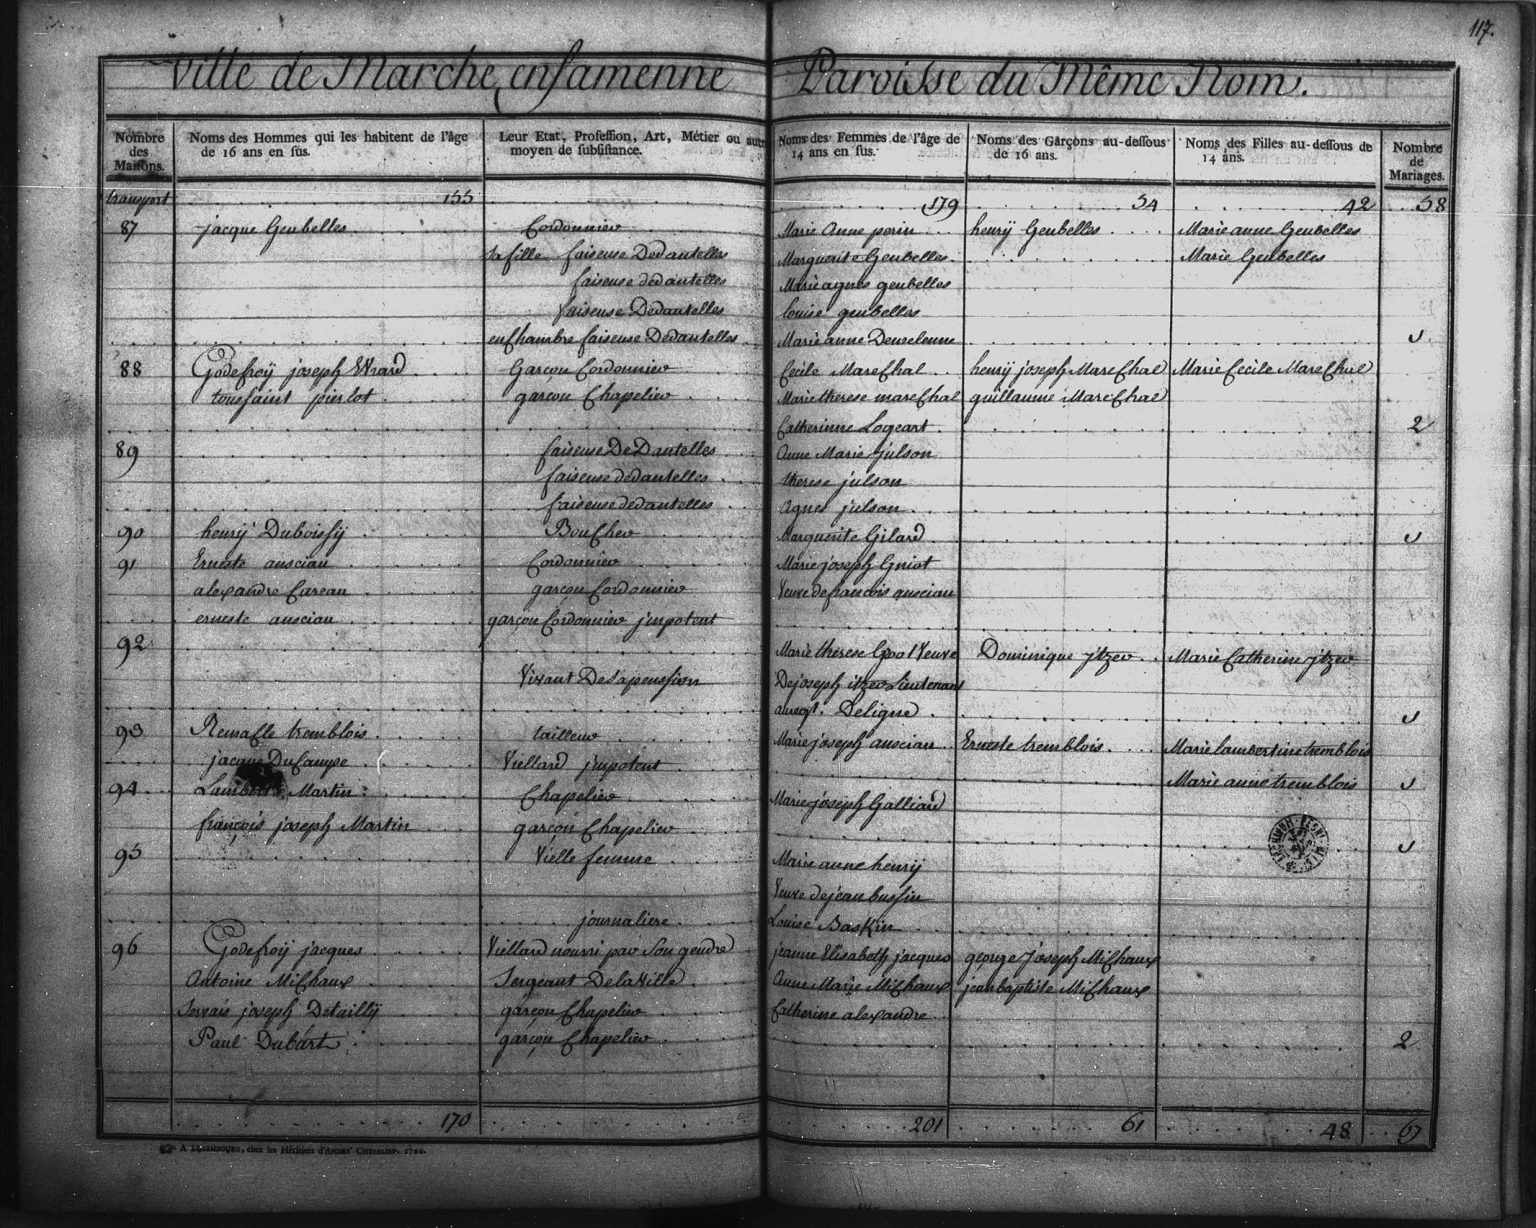 117.
Ville de Marche enfamenne Paroisse du Même Nom.
Nombre des Maisons. | Noms des Hommes qui les habitent de l'âge de 16 ans en sus. | Leur Etat, Profession, Art, Métier ou autre moyen de subsistance. | Noms des Femmes de l'âge de 14 ans en sus. | Noms des Garçons au-dessous de 16 ans. | Noms des Filles au-dessous de 14 ans. | Nombre de Mariages.
transport 155 179 54 42 58
87 jacque Geubelles Cordonnier Marie Anne perin henrÿ Geubelles Marie anne Geubelles
Sa fille faiseuse Dedantelles Marguerite Geubelles Marie Geubelles
faiseuse dedantelles Marie agnes geubelles
faiseuse Dedantelles louise geubelles
en Chambre faiseuse Dedantelles Marie anne 1
88 Godefroÿ joseph Evrard Garçon Cordonnier Cecile MareChal henrÿ joseph MareChal Marie Cecile MareChal
toussaint pierlot garçon Chapelier Marie therese mareChal guillaume MareChal
Catherinne Logeart 2
89 faiseuse De Dantelles Anne Marie julson
faiseuse dedantelles therese julson
faiseuse dedantelles Agnes julson
90 henrÿ Duboissÿ BouCher Marguerite Gilard 1
91 Erneste anscian Cordonnier Marie joseph Gniot
alexandre Careau garçon Cordonnier Veuve de francois anscian
erneste anscian garçon Cordonnier jmpotent
92 Marie therese Veuve Dominique jtzer Marie Catherine jtzer
Vivant De Sa penssion De joseph itzer Lieutenant
Deligne 1
93 RemaCle tremblois tailleur Marie joseph anscian Erneste tremblois Marie lambertine tremblois
jacque DuCampe Viellard jmpotent Marie anne tremblois 1
94 Lambert Martin Chapelier Marie joseph Galliard
françois joseph Martin garçon Chapelier 1
95 Vielle femme Marie anne henrÿ
Veuve de jean bussin
journaliere Louise Baskin
96 Godefroÿ jacques Viellard nourri par Son gendre jeanne Elisabeth jacques george Joseph MiChaux
Antoine MiChaux Sergeant Dela Ville Anne Marie MiChaux jean baptiste MiChaux
Servais joseph Detaillÿ garçon Chapelier Catherine alexandre
Paul Dubart garçon Chapelier 2
170 201 61 48 67
A LUXEMBOURG, chez les Héritiers d'ANDRÉ CHEVALIER. 1766.